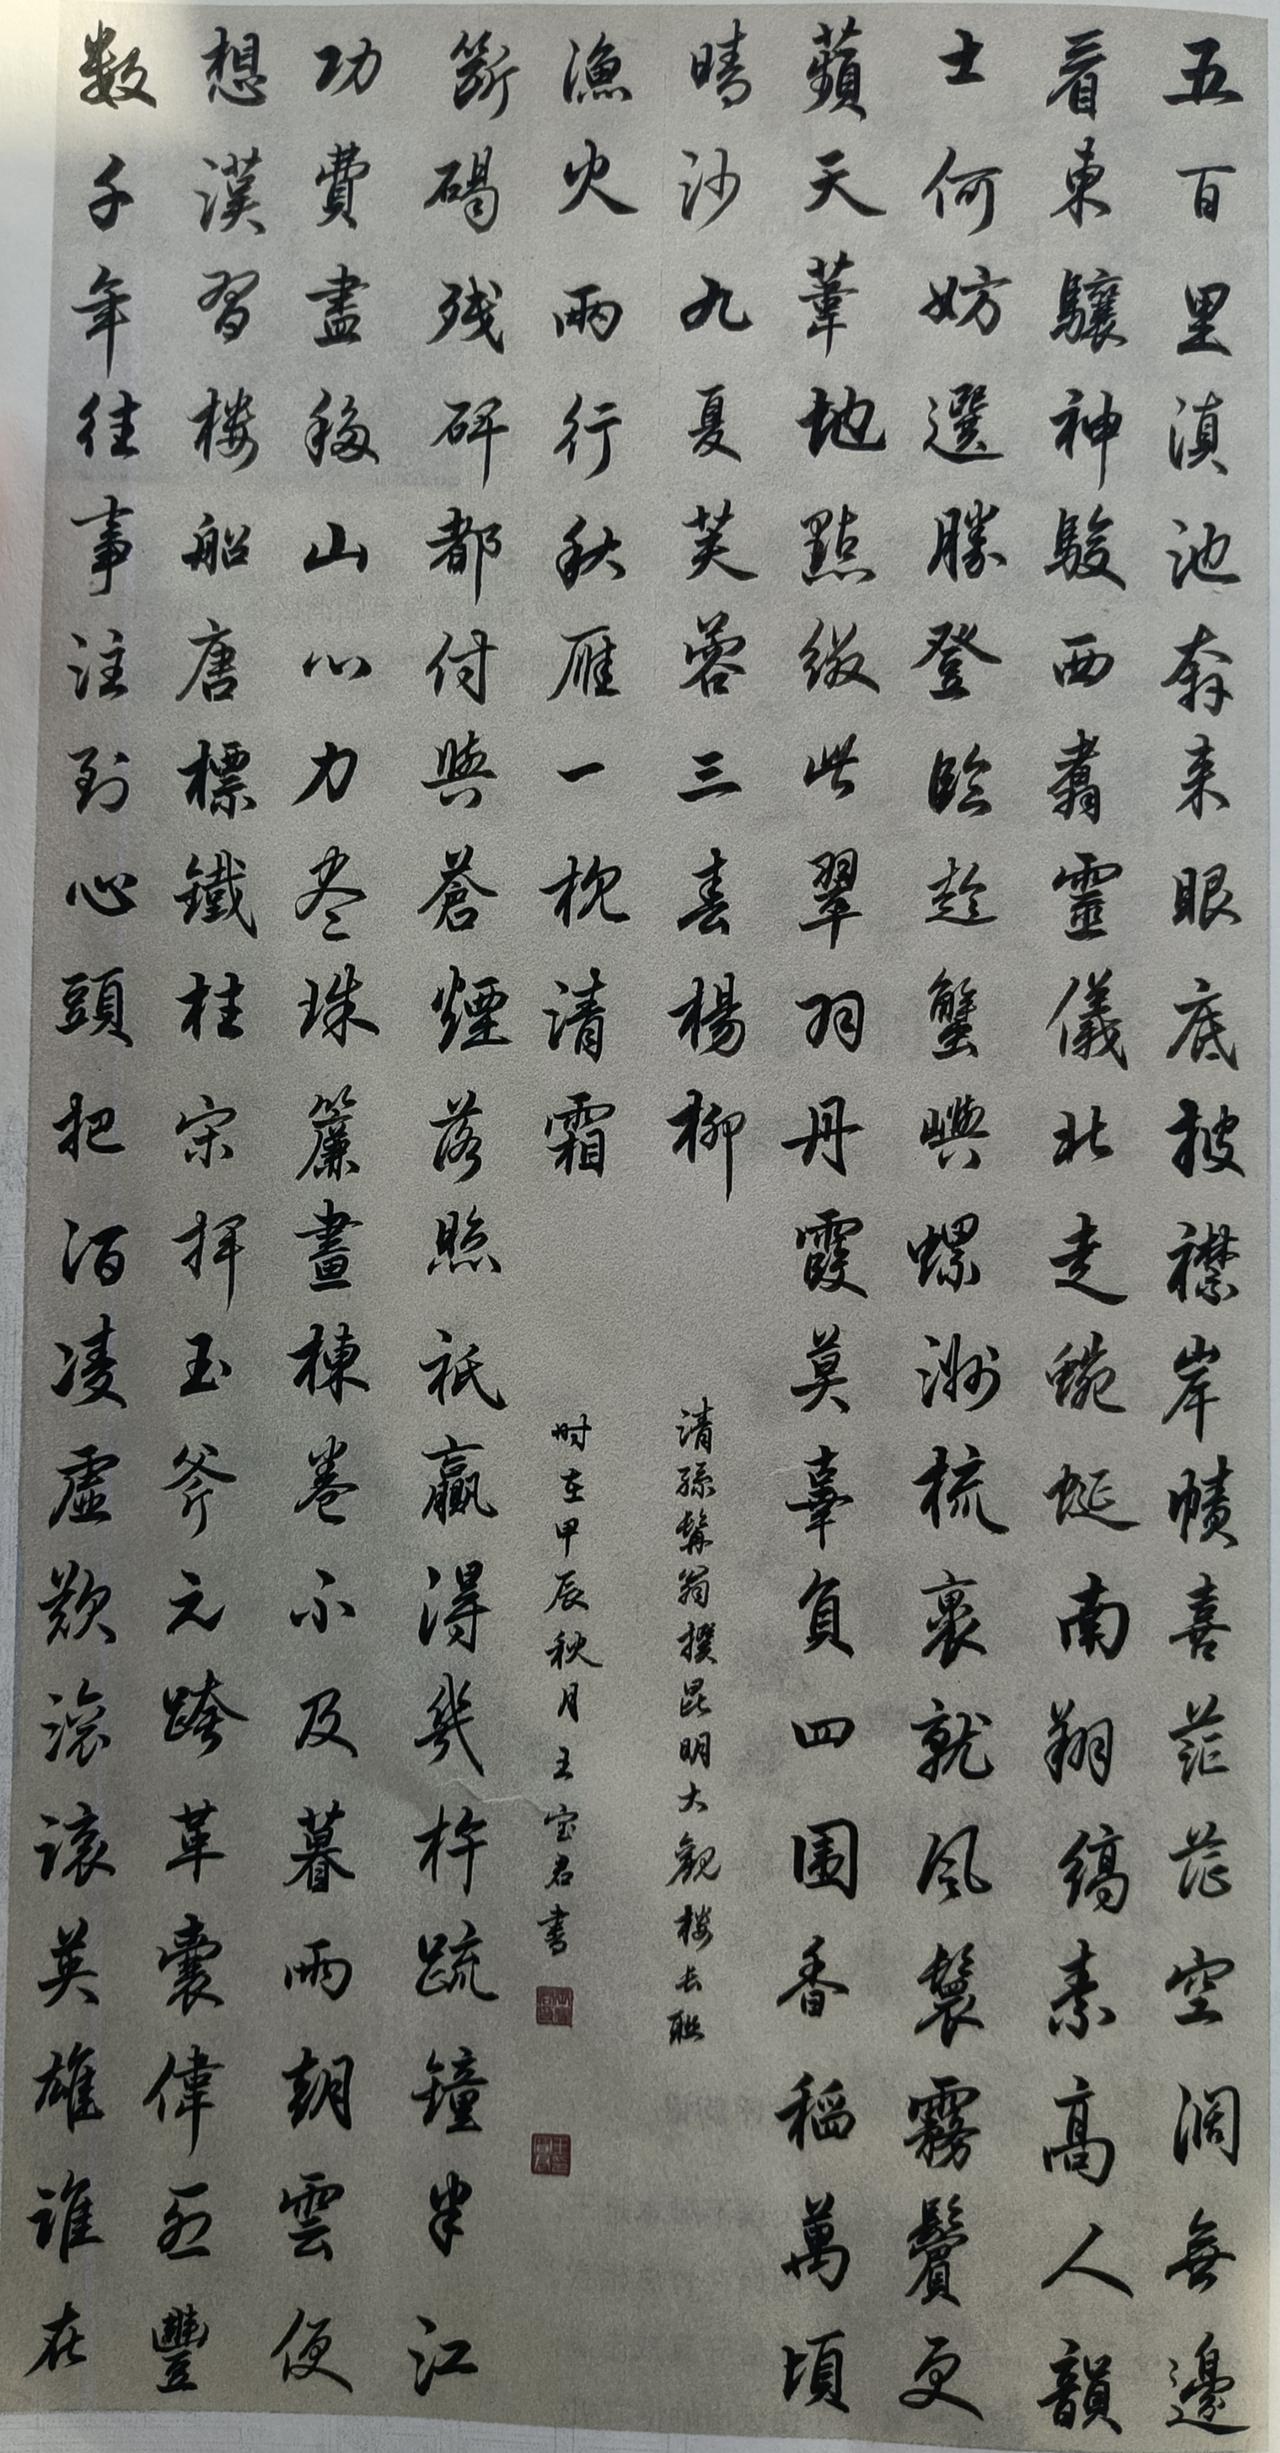 五百里滇池奔来眼底披襟岸幘喜茫茫空阔無邊
看東驤神駿西翥靈儀北走蜿蜒南翔縞素高人韻
士何妨選勝登臨趁蟹嶼螺洲梳裹就風鬟霧鬢更
蘋天葦地點綴些翠羽丹霞莫辜負四围香稻萬頃
晴沙九夏芙蓉三春楊柳
清孫髯翁撰昆明大觀楼长联
数千年往事注到心頭把酒凌虛歎滾滾英雄誰在
想漢習楼船唐標鐵柱宋揮玉斧元跨革囊偉烈豐
功費盡移山心力尽珠簾畫棟卷不及暮雨朝雲便
斷碣残碑都付與蒼煙落照祇贏得幾杵疏鐘半江
漁火兩行秋雁一枕清霜
时在甲辰秋月王宝君书